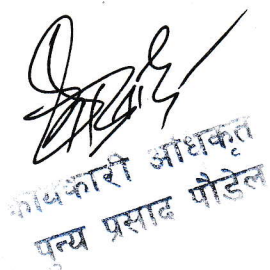 कार्यकारी अधिकृत
पुन्य प्रसाद पौडेल